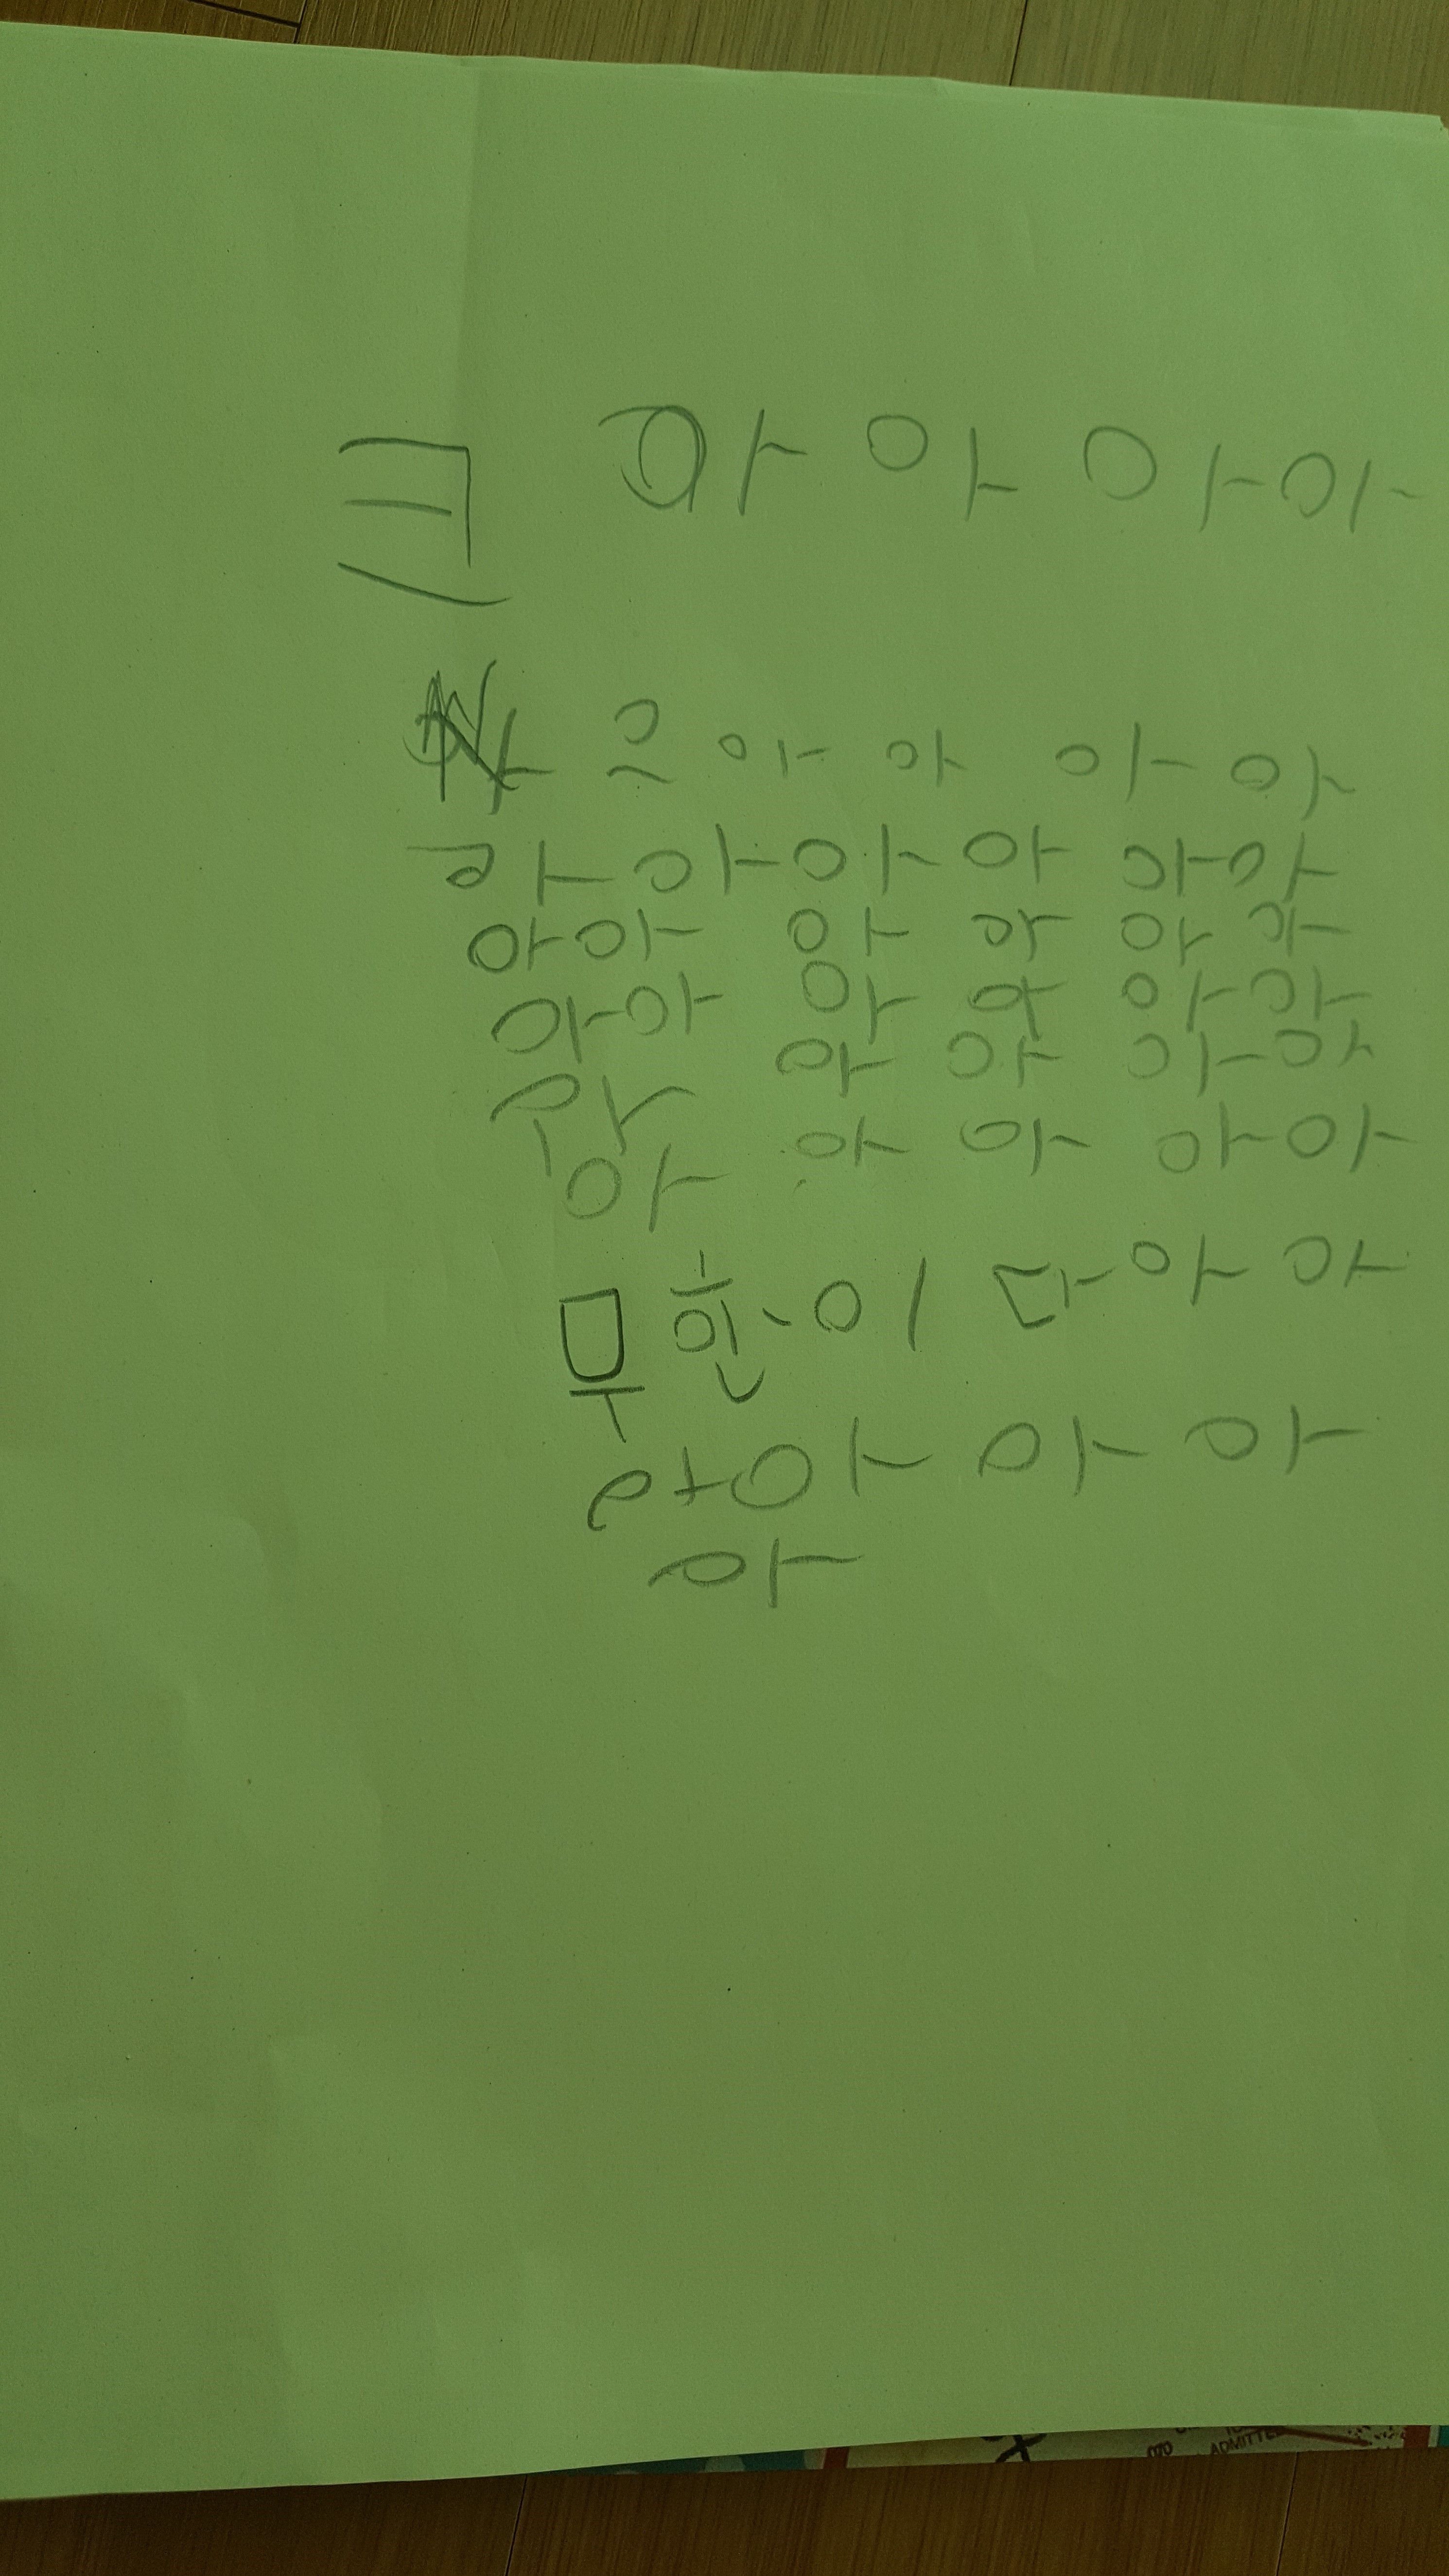 크 아 아 아 아
으 아 아 아 아
아 아 아 아 아 아
아아 아 아 아 아
아아 아 아 아 아
아 아 아 아
아 아 아 아 아
무한이다아 아
아아 아 아
아